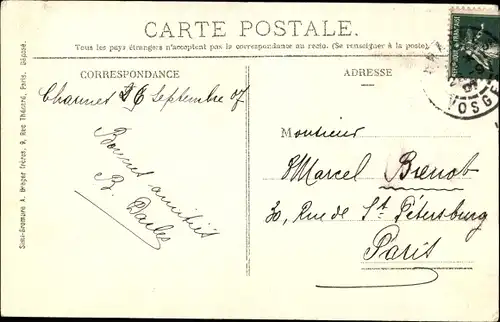 CARTE POSTALE.
Tous les pays étrangers n'acceptent pas la correspondance au recto. (Se renseigner à la poste).
CORRESPONDANCE
Charmes 6 Septembre 07
Bonnes amitiés
B.
ADRESSE
Monsieur
Marcel Brenot
30, Rue de St. Pétersburg
Paris
VOSGES
Semi-Bromure A. Breger frères, 9, Rue Thénard, Paris. Déposé.